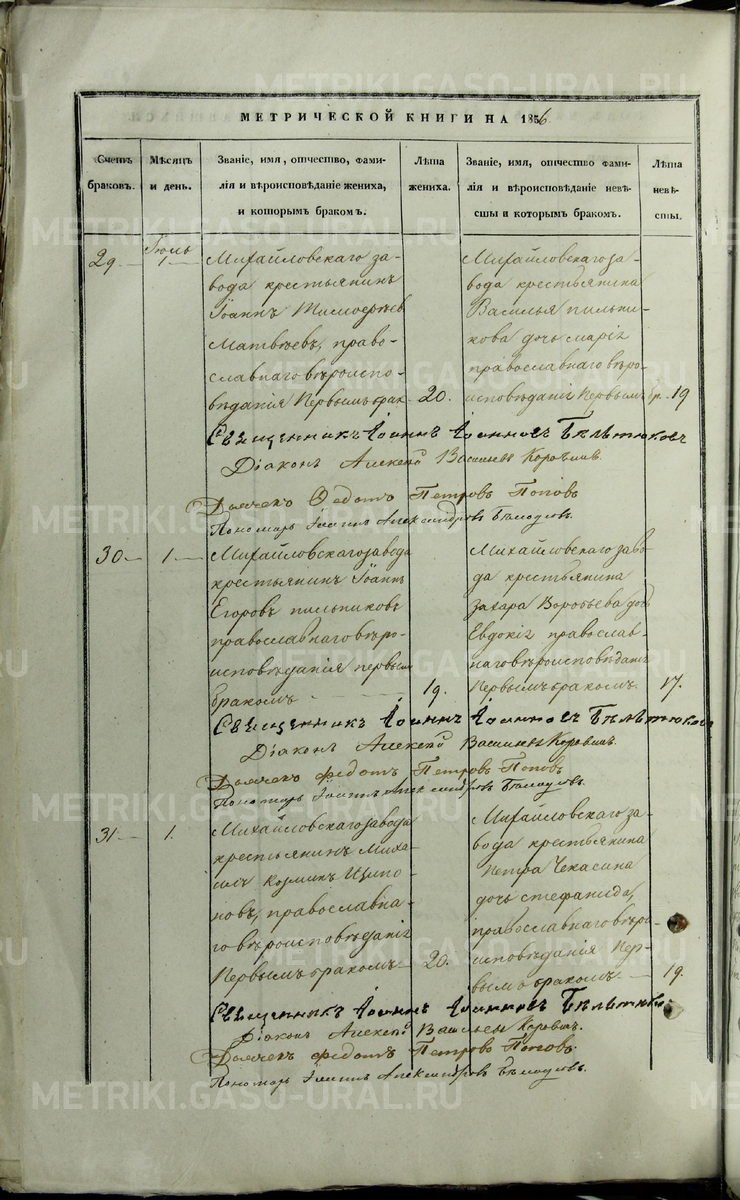 МЕТРИЧЕСКОЙ КНИГИ НА 1856
Счетъ браковъ.
Мѣсяцъ и день.
Званіе, имя, отчество, фами-
лія и вѣроисповѣданіе жениха,
и которымъ бракомъ.
Лѣта жениха.
Званіе, имя, отчество фами-
лія и вѣроисповѣданіе невѣ-
сты и которымъ бракомъ.
Лѣта невѣ-
сты.
29
Іюль
1
Михайловскаго за-
вода крестьянинъ
Іоаннъ Тимофѣевъ
Матвѣевъ, право-
славнаго вѣроиспо-
вѣданія первымъ брак
20.
Михайловскаго за-
вода крестьянина
Василья пильни-
кова дочь марія
православнаго вѣро-
исповѣданія первымъ бр.
19
Священникъ Іоаннъ Іоанновъ
Діаконъ Алексей Васильевъ
Дьячекъ Ѳедотъ Петровъ Поповъ
Пономарь Іоаннъ Александровъ
30
1
Михайловскаго завода
крестьянинъ Іоаннъ
Егоровъ пильниковъ
православнаго вѣро-
исповѣданія первым
бракомъ
19.
Михайловскаго заво-
да крестьянина
захара Воробьева доч
Евдокія православ-
наго вѣроисповѣдані
первымъ бракомъ.
17.
Священникъ Іоаннъ Іоанновъ
Діаконъ Алексей Васильевъ
Дьячекъ Федотъ Петровъ Поповъ
Пономарь Іоаннъ Александровъ
31
1.
Михайловскаго завода
крестьянинъ Миха-
илъ Козминъ Щипо-
новъ, православна-
го вѣроисповѣданія
первымъ бракомъ
20.
Михайловскаго за-
вода крестьянина
Петра Чекасина
дочь стефанида,
православнаго вѣро-
исповѣданія пер-
вымъ бракомъ.
19.
Священникъ Іоаннъ Іоанновъ
Діаконъ Алексей Васильевъ
Дьячекъ Федотъ Петровъ Поповъ.
Пономарь Іоаннъ Александровъ
METRIKI.GASO-URAL.RU